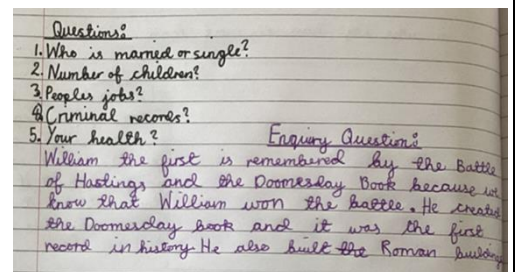 Questions:
1. Who is married or single?
2. Number of children?
3. Peoples jobs?
4. Criminal records?
5. Your health? Enquiry Question:
William the first is remembered by the Battle
of Hastings and the Doomesday Book because we
know that William won the battle. He created
the Doomesday book and it was the first
record in history. He also built the Roman building